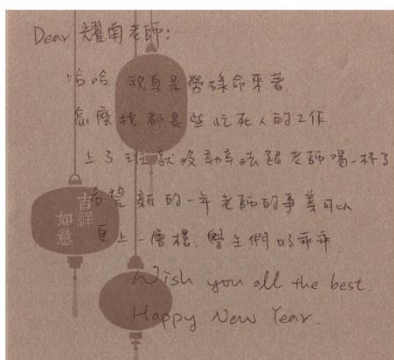 Dear 耀南老師:
哈哈 我真是勞碌命來著,
怎麼找都是些忙死人的工作
上了班就沒辦法跟老師喝一杯了
希望新的一年老師的事業可以
更上一層樓, 學生們乖乖
Wish you all the best.
Happy New Year.
吉祥
如意